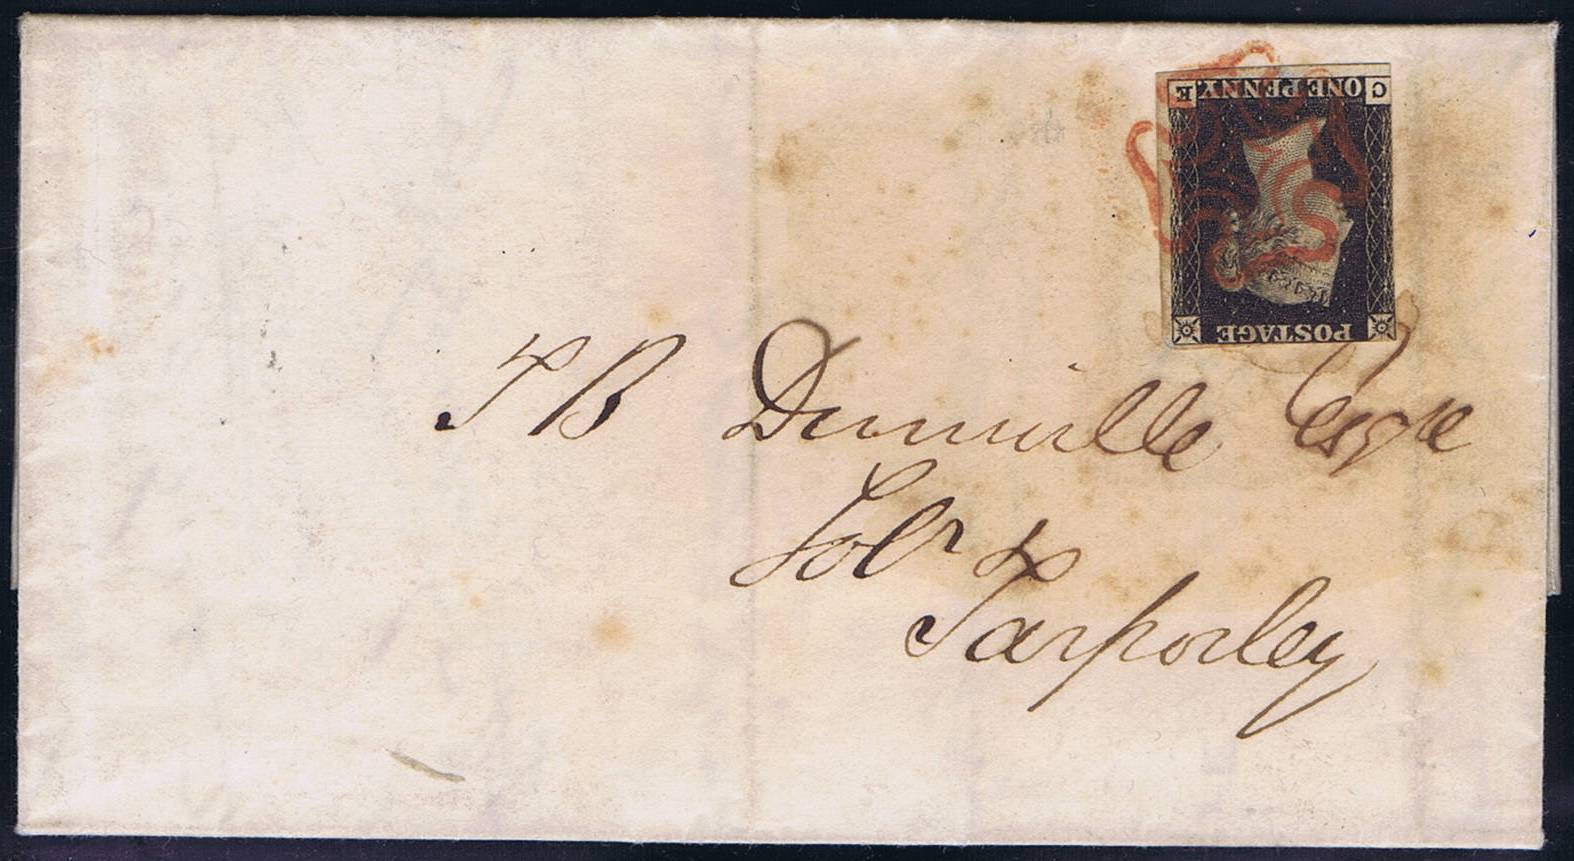 C ONE PENNY. E
POSTAGE
T B Dunville Esqre
Solr &c
Tarporley